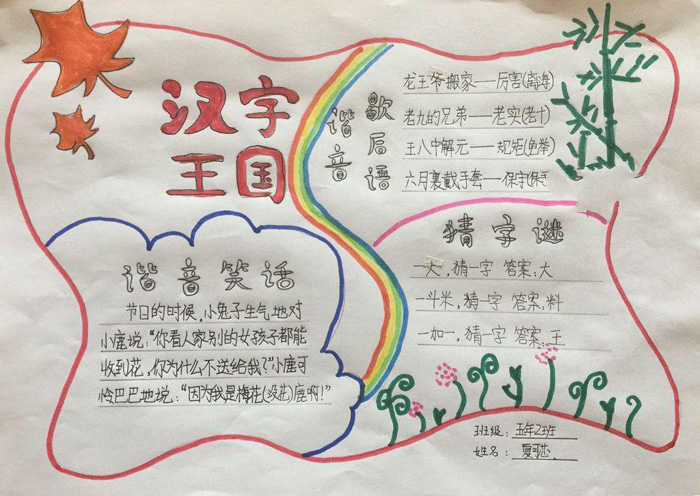 汉字
王国
谐音
歇后语
龙王爷搬家——厉害(离海)
老九的兄弟——老实(老十)
王八中解元——规矩(龟举)
六月裹戴手套——保守(保手)
猜字谜
一大,猜一字 答案:大
一斗米,猜一字 答案:料
一加一,猜一字 答案:王
谐音笑话
节日的时候,小兔子生气地对
小鹿说:“你看人家别的女孩子都能
收到花,你为什么不送给我?”小鹿可
怜巴巴地说:“因为我是梅花(没花)鹿啊!”
班级:五年2班
姓名: